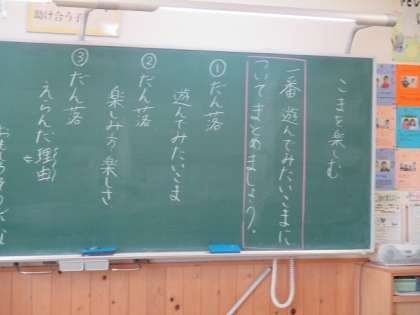 こまを楽しむ
一番 遊んでみたいこまに
ついてまとめましょう。
①だん落
遊んでみたいこま
②だん落
楽しみ方 楽しさ
③だん落
えらんだ理由
助け合う子